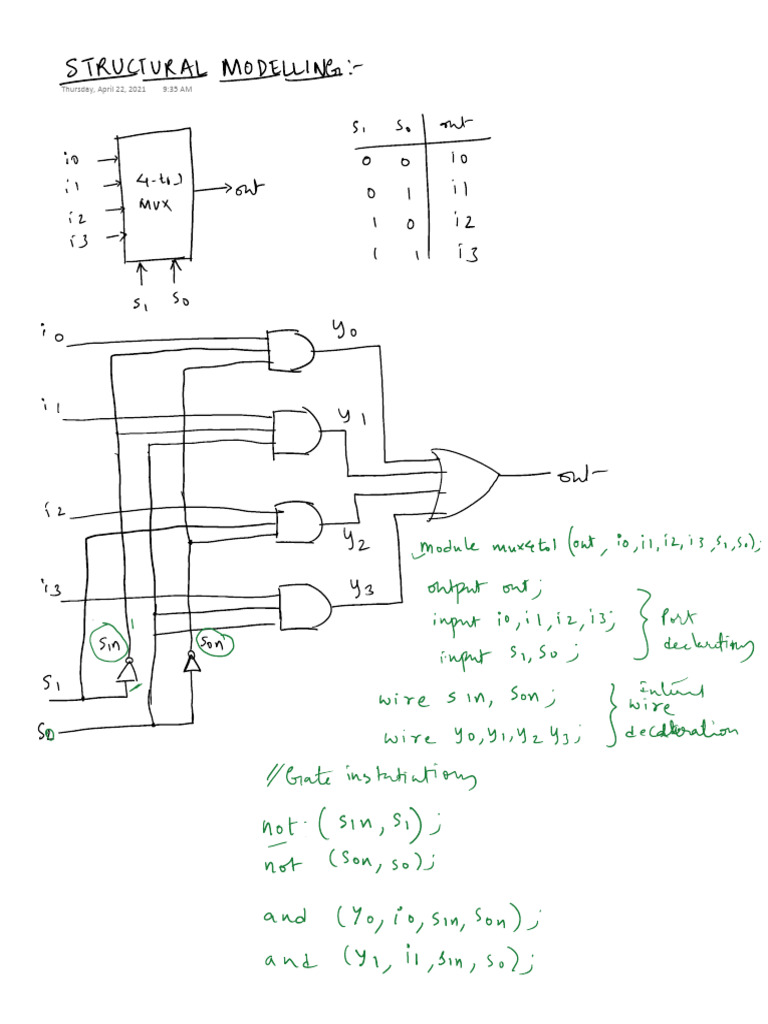 STRUCTURAL MODELLING:-
Thursday, April 22, 2021 9:35 AM
i0
i1
i2
i3
4-to1
MUX
out
S1 S0
S1 S0 out
0 0 i0
0 1 i1
1 0 i2
1 1 i3
i0
y0
i1
y1
i2
y2
i3
y3
out
S1n
S0n
S1
S0
module mux4to1 (out, i0,i1,i2,i3,s1,s0);
output out;
input i0,i1,i2,i3;
input s1,s0;
Port
wire s1n, s0n;
wire y0,y1,y2 y3;
wire
// Gate
not (s1n, s1);
not (s0n, s0);
and (y0, i0, s1n, s0n);
and (y1, i1, s1n, s0);